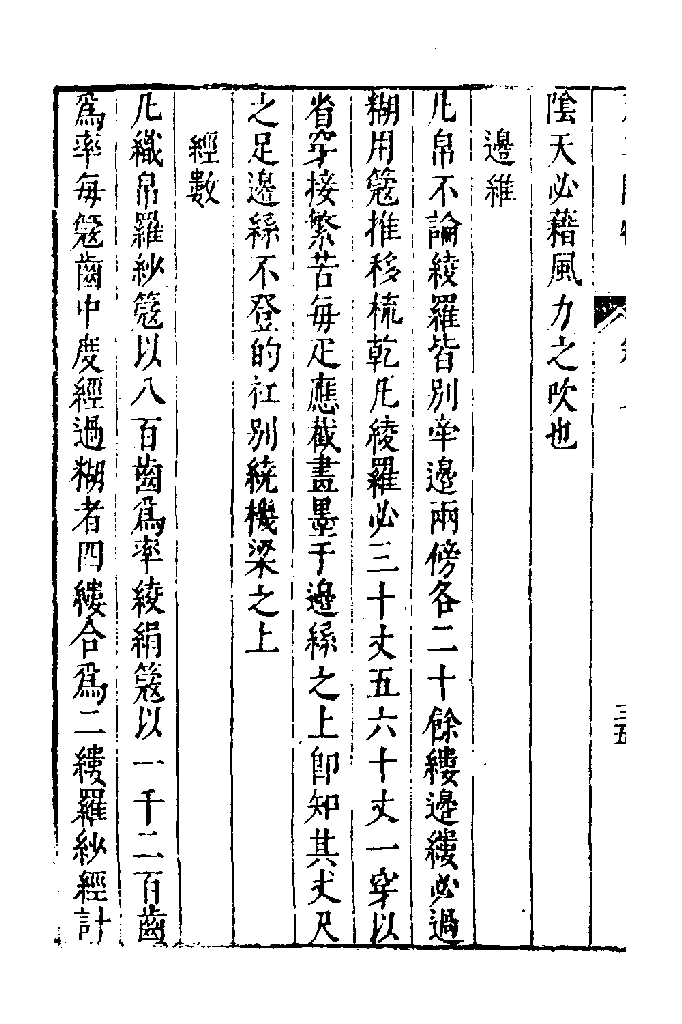 陰天必藉風力之吹也
邊維
凡帛不論綾羅皆別牵邊兩傍各二十餘縷邊縷必過
糊用筬推移梳乾凡綾羅必三十丈五六十丈一穿以
省穿接繁苦每疋應截畫墨于邊絲之上卽知其丈尺
之足邊絲不登的杠別繞機梁之上
經數
凡織帛羅紗筬以八百齒爲率綾絹筬以一千二百齒
爲率每筬齒中度經過糊者四縷合爲二縷羅紗經計